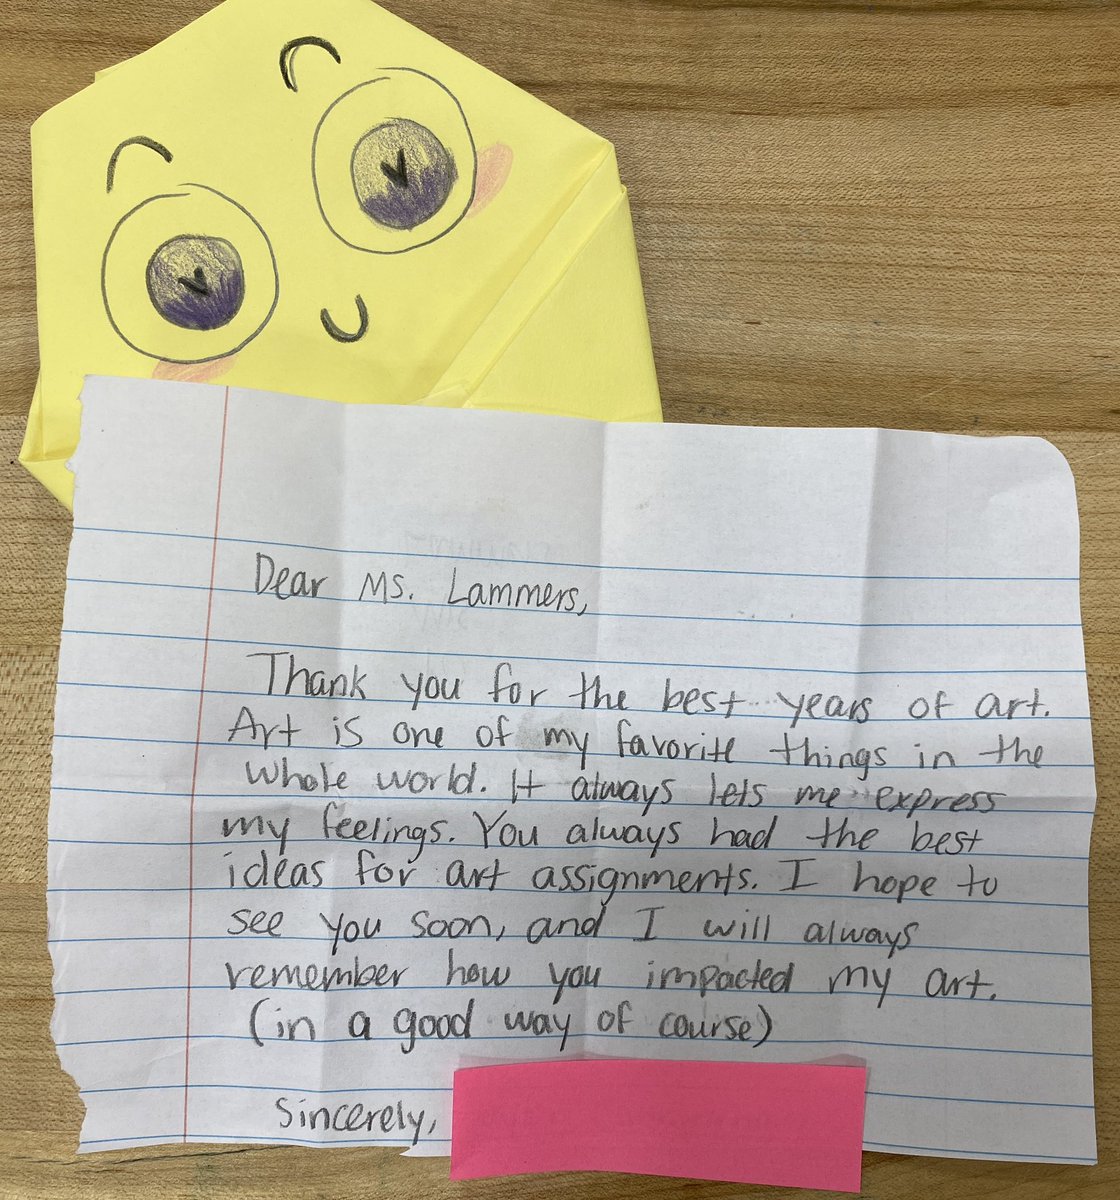 Dear Ms. Lammers,
Thank you for the best years of art.
Art is one of my favorite things in the
whole world. It always lets me express
my feelings. You always had the best
ideas for art assignments. I hope to
see you soon, and I will always
remember how you impacted my art.
(in a good way of course)
Sincerely,